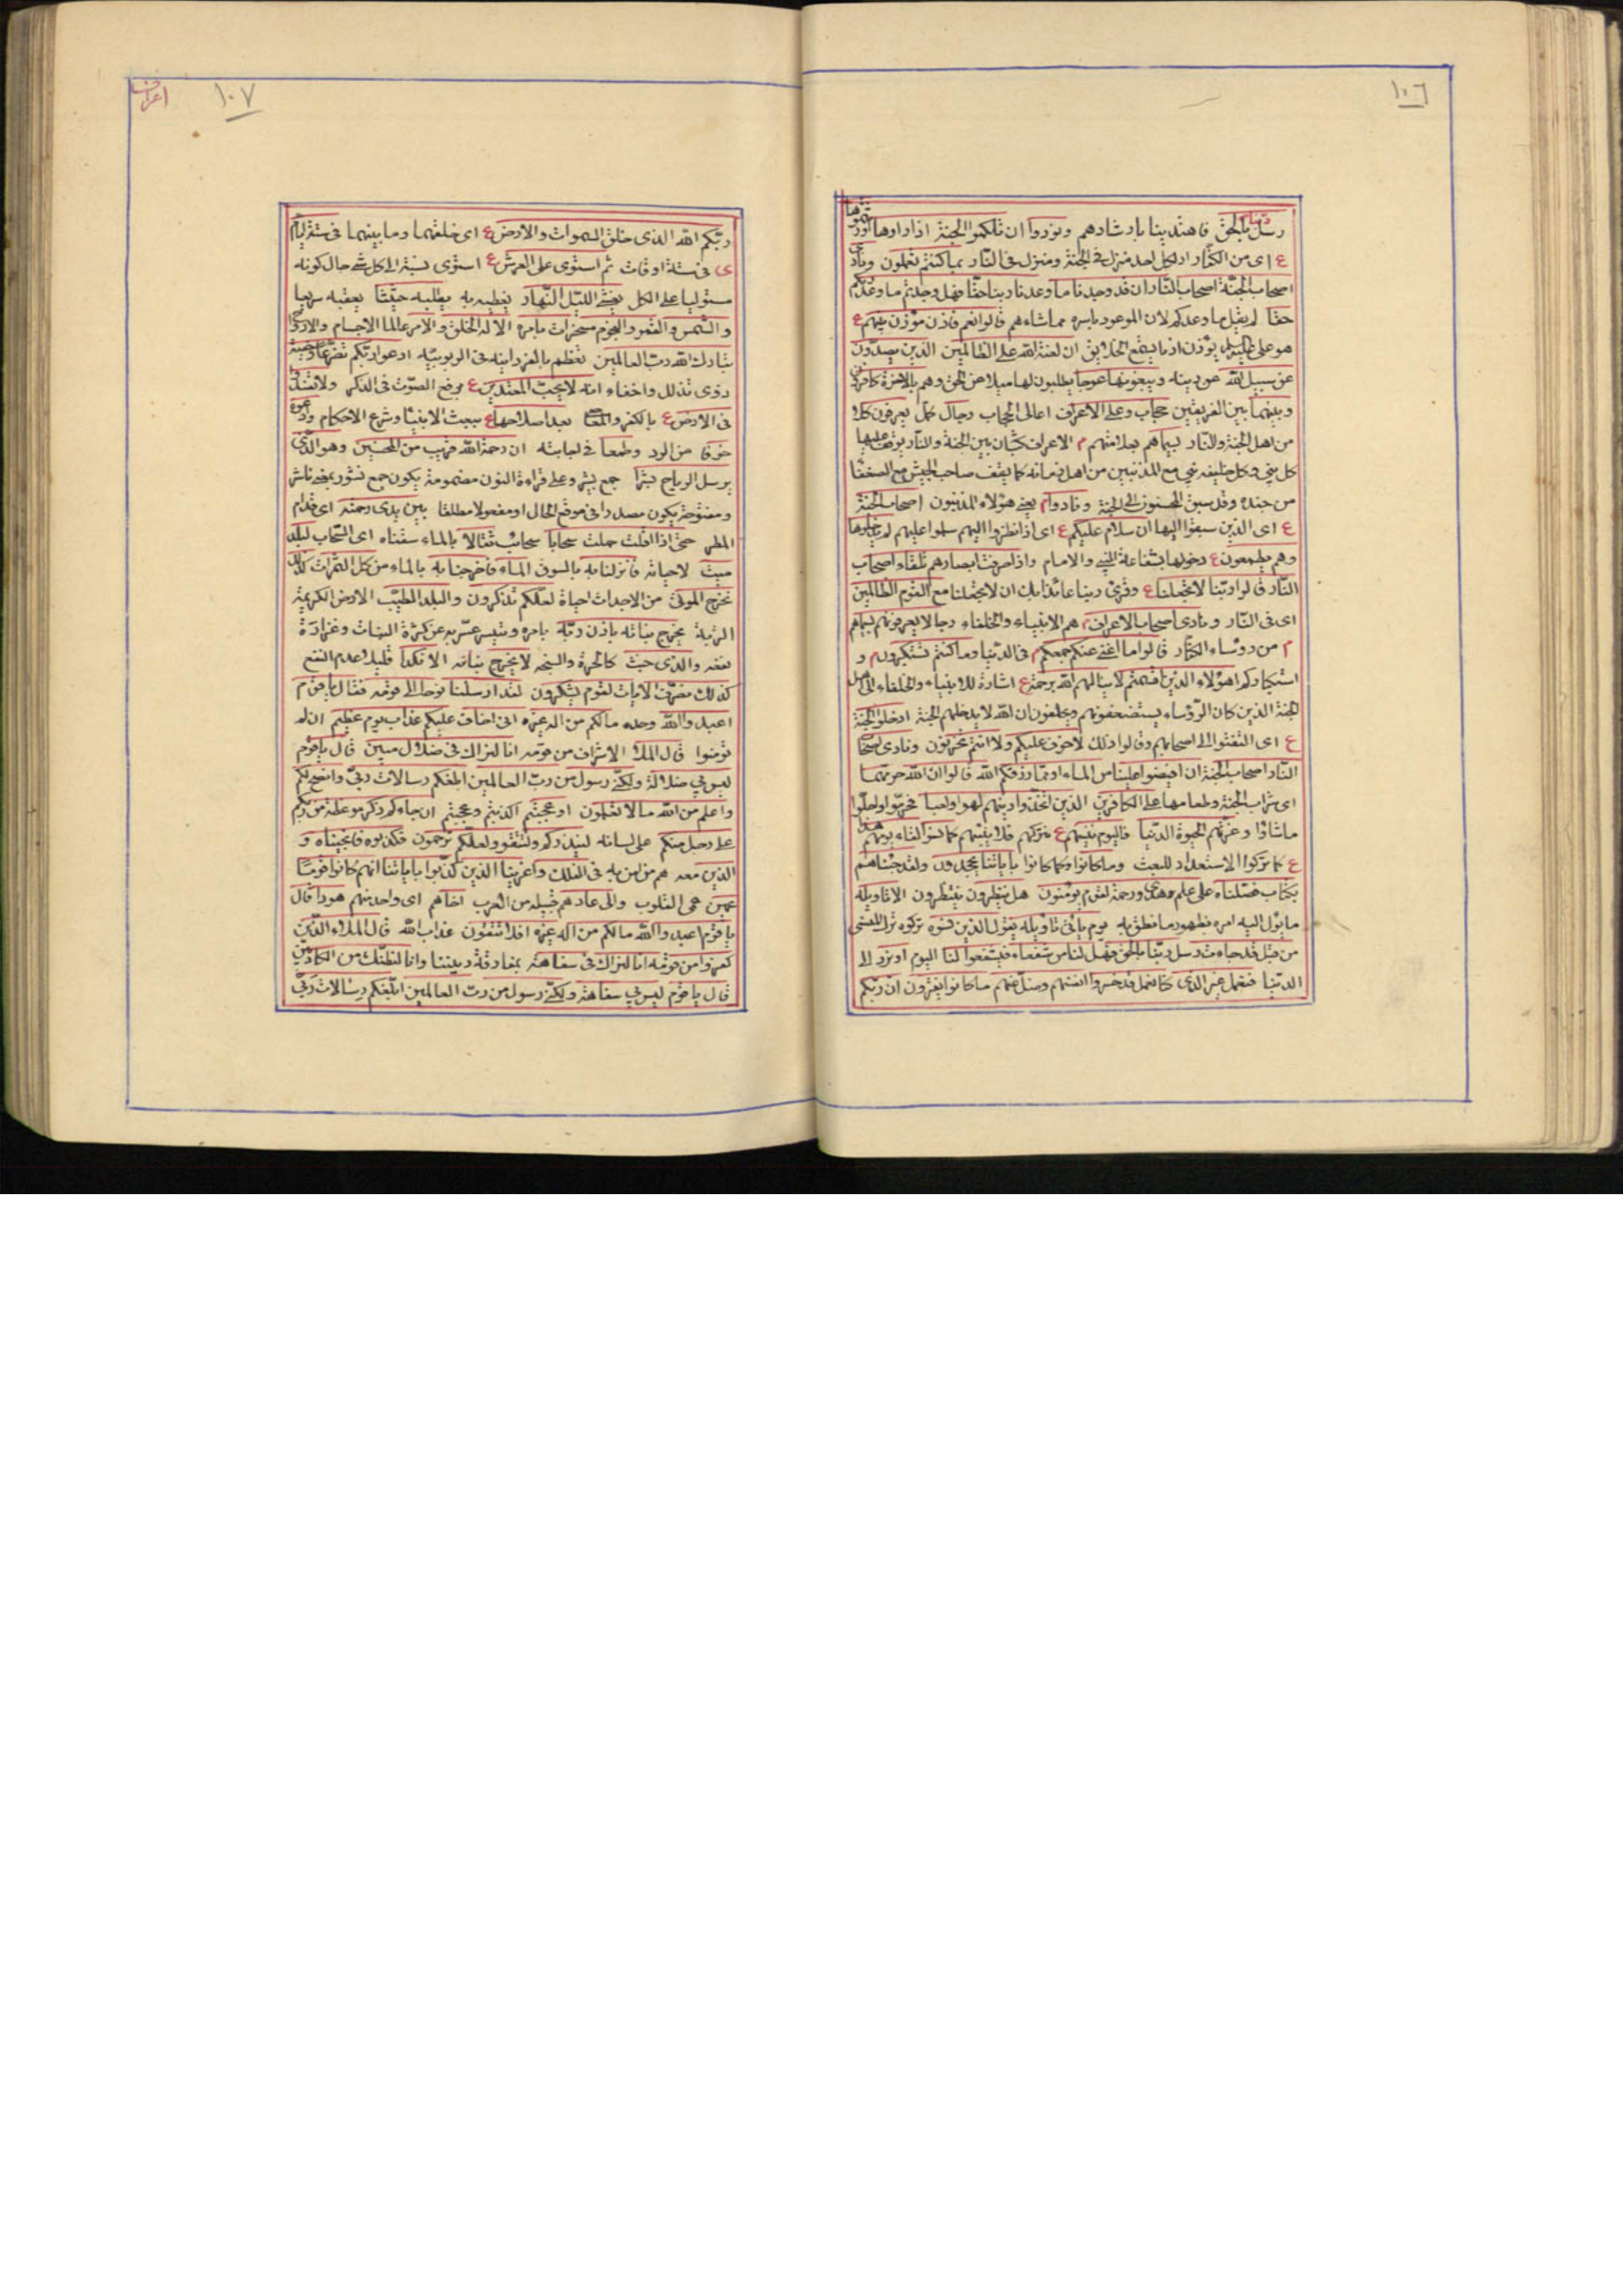 ١٠٦
رسل ربنا بالحق فاهتدينا بارشادهم ونودوا ان تلكموا الجنة اذا راوها اورثتموها
ع اى من الكفار اذ لكل احد منزل فى الجنة ومنزل فى النار بما كنتم تعملون ونادى
اصحاب الجنة اصحاب النار ان قد وجدنا ما وعدنا ربنا حقا فهل وجدتم ما وعدكم
حقا لم يقل ما وعدكم لان الموعود باسره مما شاءهم قالوا نعم فاذن مؤذن بينهم ع
هو على يؤذن اذنا يسمع الخلايق ان لعنة الله على الظالمين الذين يصدون
عن سبيل الله عن دينه ويبغونها عوجا يطلبون لها ميلا عن الحق وهم بالاخرة كافرون
وبينهما بين الفريقين حجاب وعلى الاعراف اعالى الحجاب رجال يعرفون كلا
من اهل الجنة والنار بسيماهم بعلامتهم م الاعراف كثبان بين الجنة والنار يوقف عليها
كل نبى وكل خليفة نبى مع المذنبين من اهل زمانه كما يقف صاحب الجيش مع الضعفا
من جنده وقد سبق المحسنون الى الجنة ونادوا م يعنى هؤلاء المذنبون اصحاب الجنة
ع اى الذين سبقوا اليها ان سلام عليكم ع اى اذا نظروا اليهم سلموا عليهم لم يدخلوها
وهم يطمعون ع دخولها بشفاعة النبى والامام واذا صرفت ابصارهم تلقاء اصحاب
النار قالوا ربنا لا تجعلنا ع وقرئ ربنا عائذا بك ان لا تجعلنا مع القوم الظالمين
اى فى النار ونادى اصحاب الاعراف م هم الانبياء والخلفاء رجالا يعرفونهم بسيماهم
م من رؤساء الكفار قالوا ما اغنى عنكم جمعكم م فى الدنيا وما كنتم تستكبرون م و
استكباركم اهؤلاء الذين اقسمتم لا ينالهم الله برحمة ع اشارة للانبياء والخلفاء الى اهل
الجنة الذين كان الرؤساء يستضعفونهم ويحلفون ان الله لا يدخلهم الجنة ادخلوا الجنة
ع اى التفتوا الى اصحابهم وقالوا ذلك لا خوف عليكم ولا انتم تحزنون ونادى اصحاب
النار اصحاب الجنة ان افيضوا علينا من الماء او مما رزقكم الله قالوا ان الله حرمهما
اى شراب الجنة وطعامها على الكافرين الذين اتخذوا دينهم لهوا ولعبا فحرموا وحللوا
ما شاؤا وغرتهم الحيوة الدنيا فاليوم ننسيهم ع نتركهم كما نسوا لقاء يومهم هذا
ع كما تركوا الاستعداد للبعث وما كانوا وكما كانوا باياتنا يجحدون ولقد جئناهم
بكتاب فصلناه على علم هدى ورحمة لقوم يؤمنون هل ينظرون ينتظرون الا تاويله
ما يؤل اليه امره بظهور ما نطق به يوم ياتى تاويله يقول الذين نسوه تركوه ترك المنسى
من قبل قد جاءت رسل ربنا بالحق فهل لنا من شفعاء فيشفعوا لنا اليوم او نرد الى
الدنيا فنعمل غير الذى كنا نعمل قد خسروا انفسهم وضل عنهم ما كانوا يفترون ان ربكم
١٠٧
اعراف
ربكم الله الذى خلق السموات والارض ع اى خلقهما وما بينهما فى ستة ايام
ى فى ستة اوقات ثم استوى على العرش ع استوى نسبته الى كل شئ حال كونه
مستوليا على الكل يغشى الليل النهار يغطيه به يطلبه حثيثا يعقبه سريعا
والشمس والقمر والنجوم مسخرات بامره الا له الخلق والامر عالما الاجسام والارواح
تبارك الله رب العالمين تعظم بالفردانية فى الربوبية ادعوا ربكم تضرعا وخفية
ذوى تذلل واخفاء انه لا يحب المعتدين ع برفع الصوت فى الذكر ولا تفسدوا
فى الارض ع بالكفر والمعاصى بعد اصلاحها ع ببعث الانبيا وشرع الاحكام وادعوه
خوفا من الرد وطمعا فى اجابته ان رحمة الله قريب من المحسنين وهو الذى
يرسل الرياح بشرا جمع بشير وعلى قراءة النون مضمومة يكون جمع نشور بمعنى ناشر
ومفتوحة يكون مصدرا فى موقع الحال او مفعولا مطلقا بين يدى رحمته اى قدام
المطر حتى اذا اقلت حملت سحابا سحائب ثقالا بالماء سقناه اى السحاب لبلد
ميت لاحيائه فانزلنا به بالسوق الماء فاخرجنا به بالماء من كل الثمرات كذلك
نخرج الموتى من الاجداث احياء لعلكم تذكرون والبلد الطيب الارض الكريمة
التربة يخرج نباته باذن ربه بامره وتيسير عبر به عن كثرة النبات وغزارة
نفعه والذى خبث كالحرة والسبخة لا يخرج نباته الا نكدا قليلا عدم النفع
كذلك نصرف الايات لقوم يشكرون لقد ارسلنا نوحا الى قومه فقال يا قوم
اعبدوا الله وحده ما لكم من اله غيره انى اخاف عليكم عذاب يوم عظيم ان لم
تؤمنوا قال الملأ الاشراف من قومه انا لنراك فى ضلال مبين قال يا قوم
ليس بى ضلالة ولكنى رسول من رب العالمين ابلغكم رسالات ربى وانصح لكم
واعلم من الله ما لا تعلمون او عجبتم اكذبتم وعجبتم ان جاءكم ذكر موعظة من ربكم
على رجل منكم على لسانه لينذركم ولتتقوا ولعلكم ترحمون فكذبوه فانجيناه و
الذين معه هم من امن به فى الفلك واغرقنا الذين كذبوا باياتنا انهم كانوا قوما
عمين عمى القلوب والى عاد هم قبيلة من العرب اخاهم اى واحد منهم هودا قال
يا قوم اعبدوا الله ما لكم من اله غيره افلا تتقون عذاب الله قال الملأ الذين
كفروا من قومه انا لنراك فى سفاهة بمفارقة ديننا وانا لنظنك من الكاذبين
قال يا قوم ليس بى سفاهة ولكنى رسول من رب العالمين ابلغكم رسالات ربى